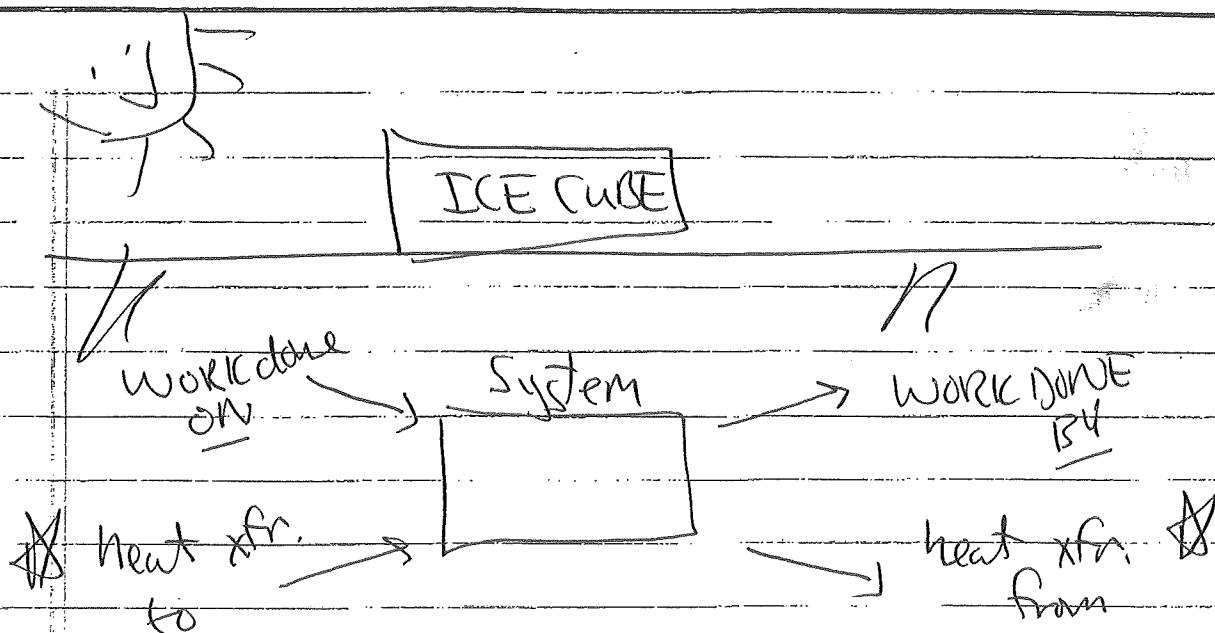 ICE CUBE
WORK done
ON
System
WORK DONE
BY
heat xfr.
to
heat xfr.
from